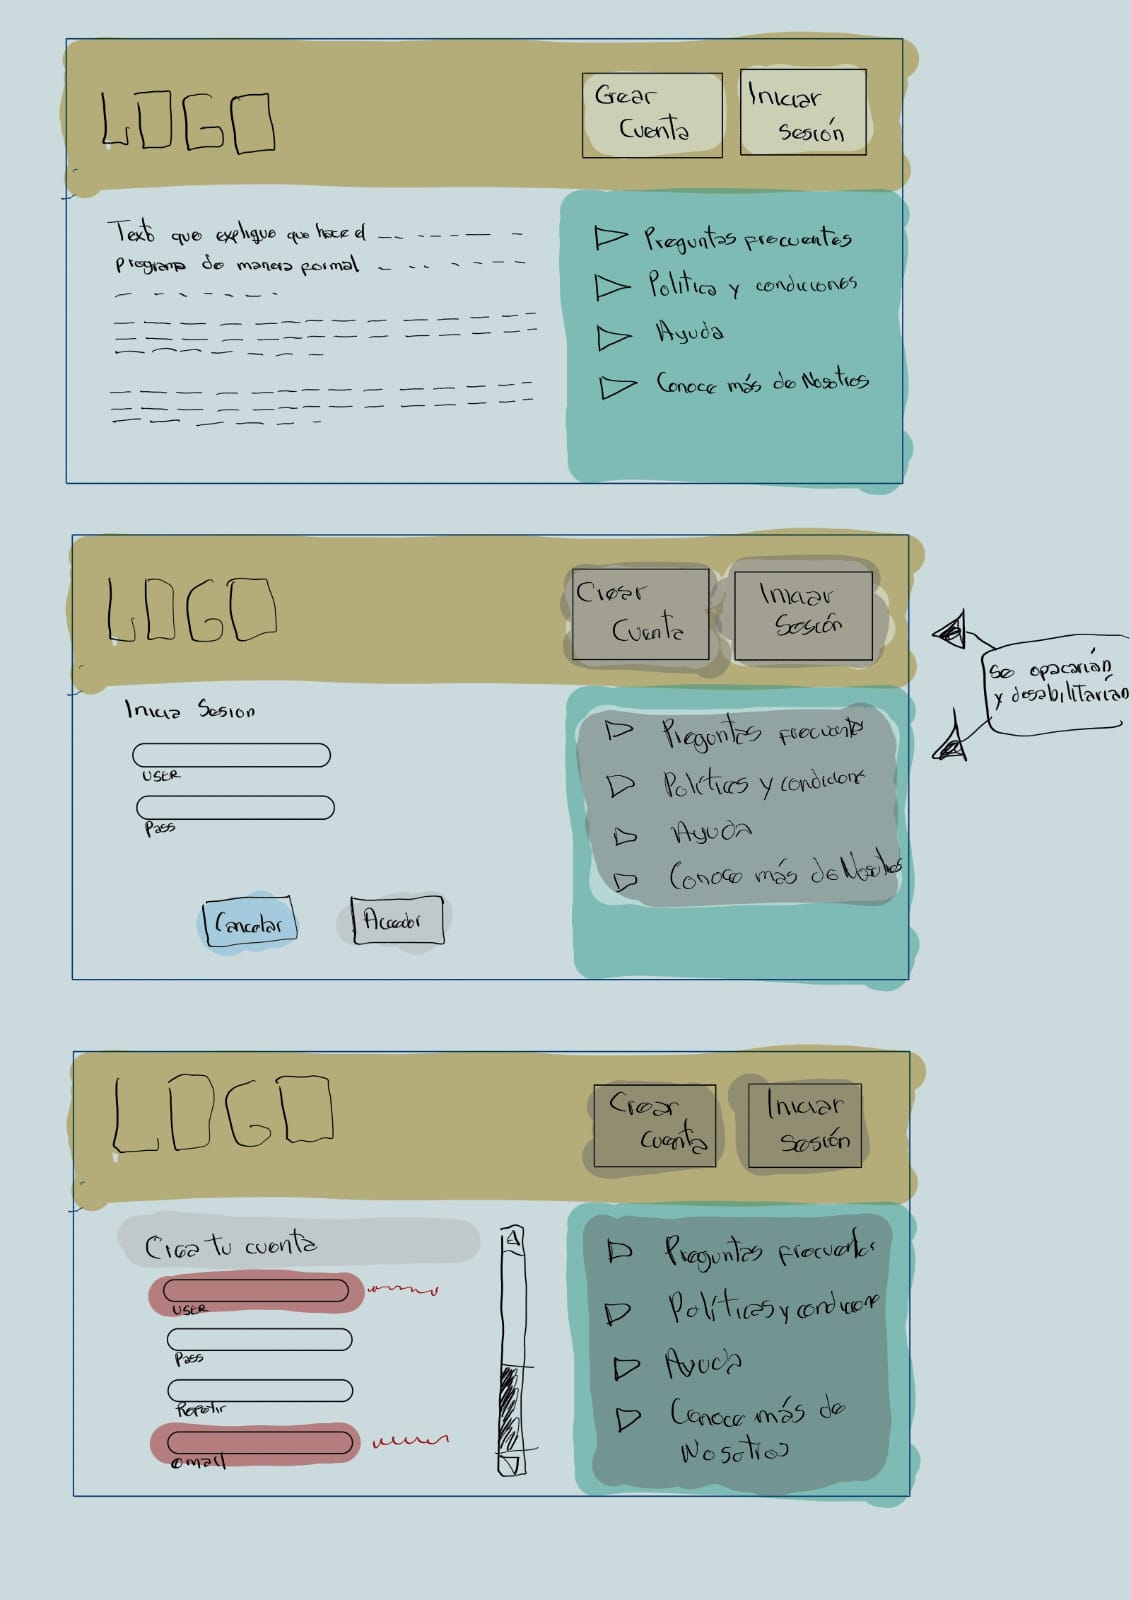 LOGO
Crear
Cuenta
Iniciar
Sesión
Texto que explique que hace el
programa de manera formal
Preguntas frecuentes
Politica y condiciones
Ayuda
Conoce más de Nosotros
LOGO
Crear
Cuenta
Iniciar
Sesión
Se opacarían
y desabilitarían
Inicia Sesion
USER
Pass
Cancelar
Acceder
Preguntas frecuentes
Políticas y condicione
Ayuda
Conoce más de Nosotros
LOGO
Crear
Cuenta
Iniciar
Sesión
Crea tu cuenta
USER
Pass
Repetir
email
Preguntas frecuentes
Políticas y condicione
Ayuda
Conoce más de
Nosotros